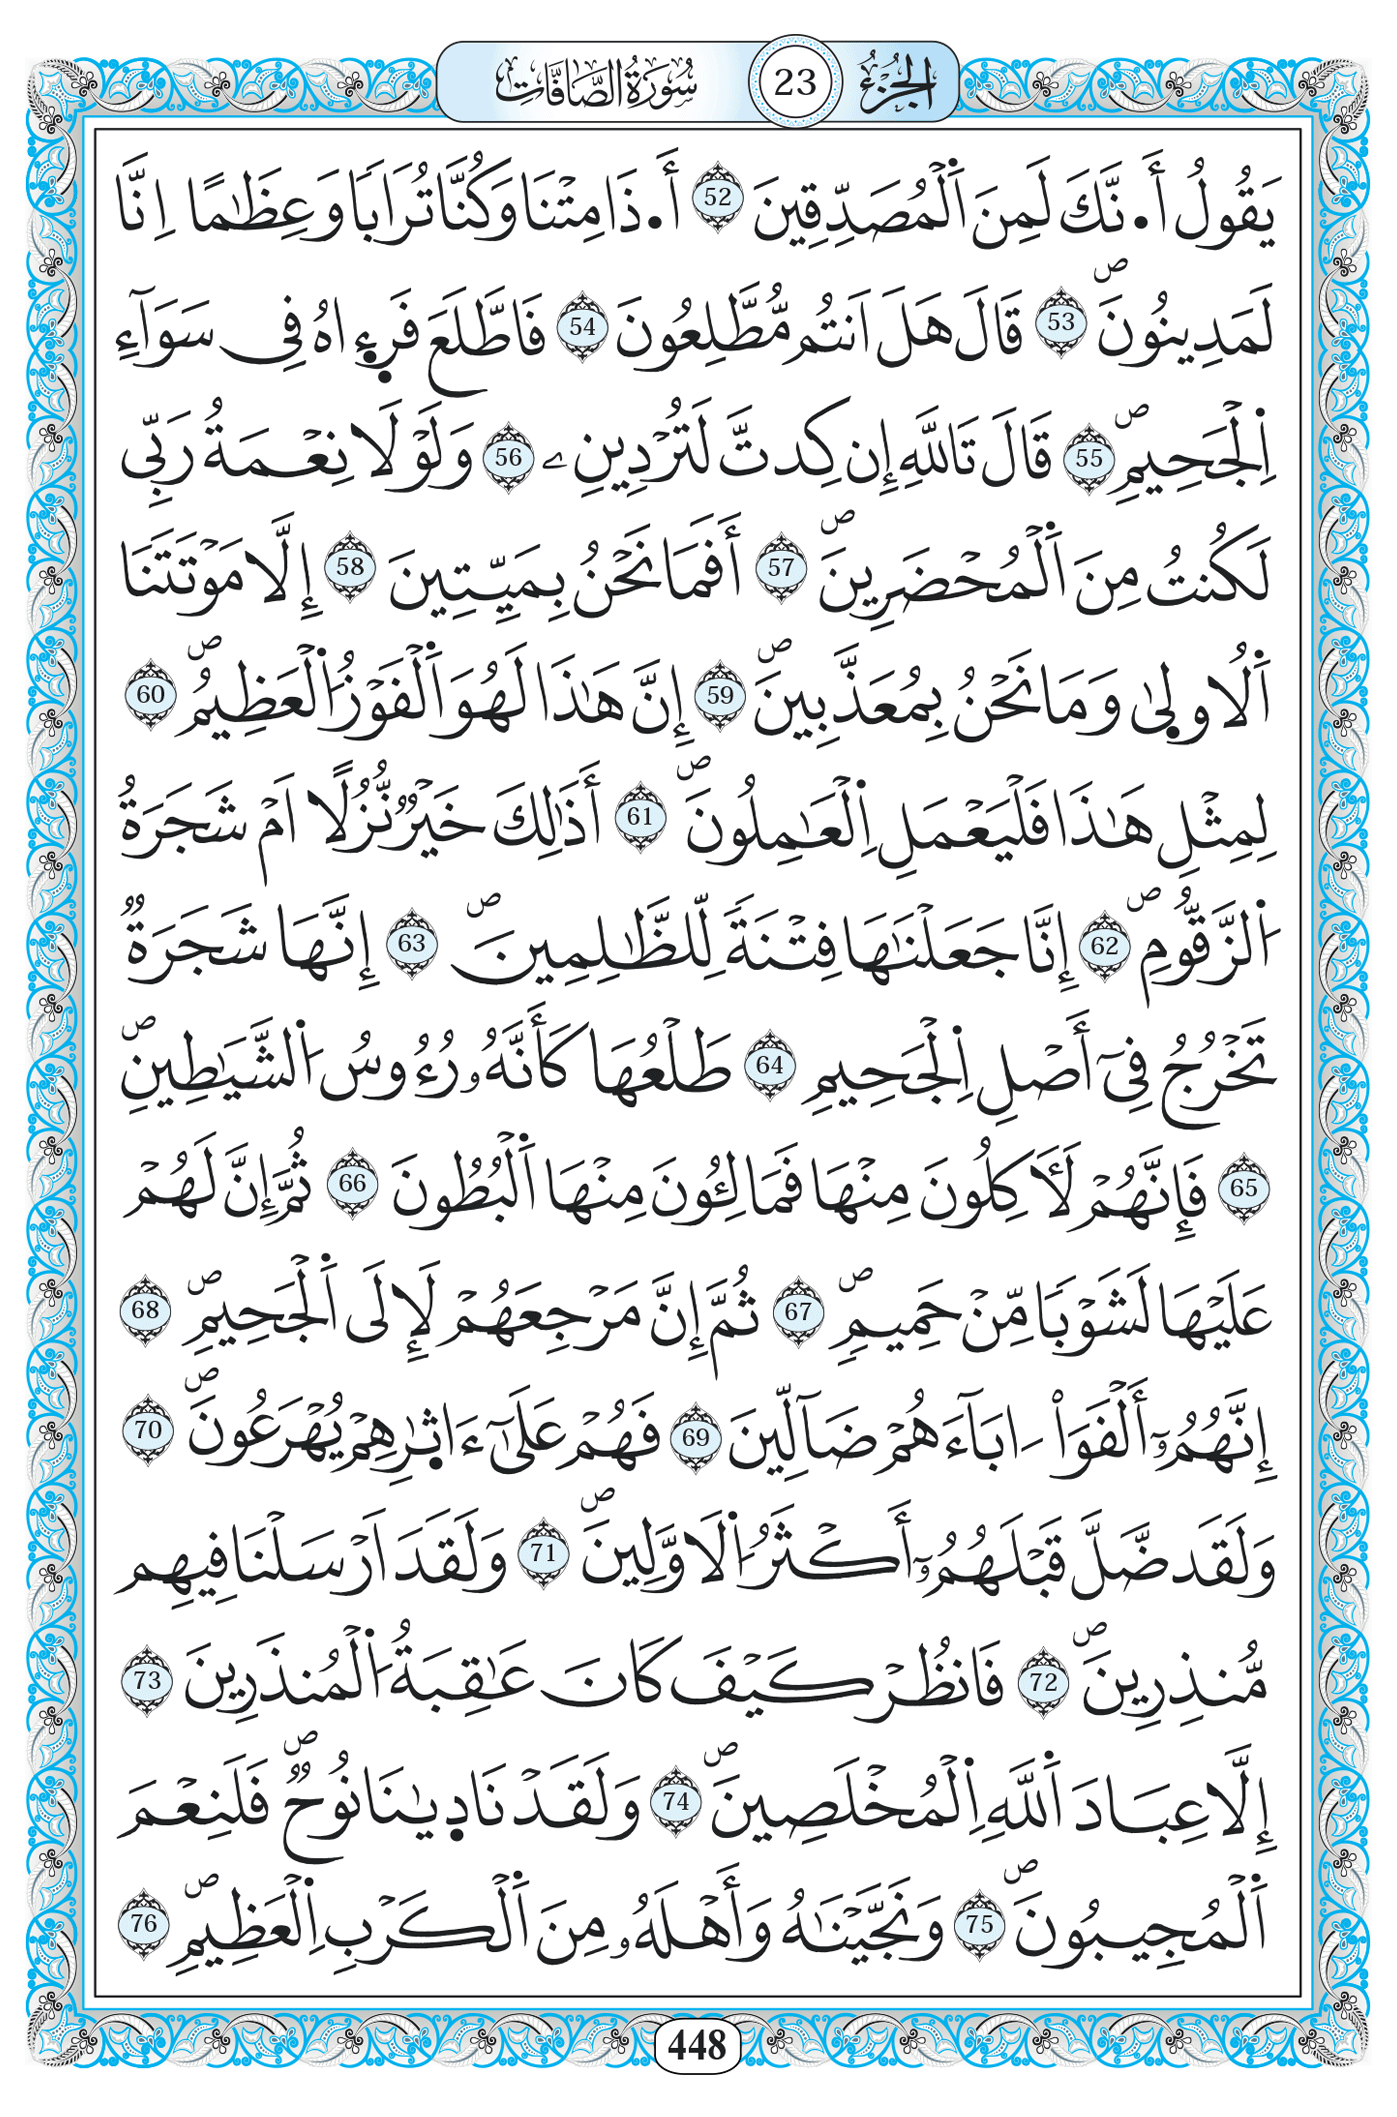 الجزء 23 سورة الصافات
يَقُولُ أَ.نَّكَ لَمِنَ اَ۬لْمُصَدِّقِينَ 52 أَ.ذَا مِتْنَا وَكُنَّا تُرَاباٗ وَعِظَٰماً اِنَّا
لَمَدِينُونَۖ 53 قَالَ هَلَ اَنتُم مُّطَّلِعُونَ 54 فَاطَّلَعَ فَرِء۪اهُ فِى سَوَآءِ
اِ۬لْجَحِيمِۖ 55 قَالَ تَاللَّهِ إِن كِدتَّ لَتُرْدِينِۦ 56 وَلَوْلَا نِعْمَةُ رَبِّى
لَكُنتُ مِنَ اَ۬لْمُحْضَرِينَۖ 57 أَفَمَا نَحْنُ بِمَيِّتِينَ 58 إِلَّا مَوْتَتَنَا
اَ۬لُاول۪ىٰ وَمَا نَحْنُ بِمُعَذَّبِينَۖ 59 إِنَّ هَٰذَا لَهُوَ اَ۬لْفَوْزُ اُ۬لْعَظِيمُۖ 60
لِمِثْلِ هَٰذَا فَلْيَعْمَلِ اِ۬لْعَٰمِلُونَۖ 61 أَذَٰلِكَ خَيْرٞ نُّزُلاً اَمْ شَجَرَةُ
اُ۬لزَّقُّومِۖ 62 إِنَّا جَعَلْنَٰهَا فِتْنَةٗ لِّلظَّٰلِمِينَۖ 63 إِنَّهَا شَجَرَةٞ
تَخْرُجُ فِىٓ أَصْلِ اِ۬لْجَحِيمِ 64 طَلْعُهَا كَأَنَّهُۥ رُءُوسُ اُ۬لشَّيَٰطِينِۖ
65 فَإِنَّهُمْ لَأٓكِلُونَ مِنْهَا فَمَالِـُٔونَ مِنْهَا اَ۬لْبُطُونَ 66 ثُمَّ إِنَّ لَهُمْ
عَلَيْهَا لَشَوْباٗ مِّنْ حَمِيمٖۖ 67 ثُمَّ إِنَّ مَرْجِعَهُمْ لَإِلَى اَ۬لْجَحِيمِۖ 68
إِنَّهُمُۥٓ أَلْفَوَاْ اٰبَآءَهُمْ ضَآلِّينَ 69 فَهُمْ عَلَىٰٓ ءَاثٰ۪رِهِمْ يُهْرَعُونَۖ 70
وَلَقَد ضَّلَّ قَبْلَهُمُۥٓ أَكْثَرُ اُ۬لَاوَّلِينَۖ 71 وَلَقَدَ اَرْسَلْنَا فِيهِم
مُّنذِرِينَۖ 72 فَانظُرْ كَيْفَ كَانَ عَٰقِبَةُ اُ۬لْمُنذَرِينَ 73
إِلَّا عِبَادَ اَ۬للَّهِ اِ۬لْمُخْلَصِينَۖ 74 وَلَقَدْ نَاد۪يٰنَا نُوحٞۖ فَلَنِعْمَ
اَ۬لْمُجِيبُونَۖ 75 وَنَجَّيْنَٰهُ وَأَهْلَهُۥ مِنَ اَ۬لْكَرْبِ اِ۬لْعَظِيمِۖ 76
448